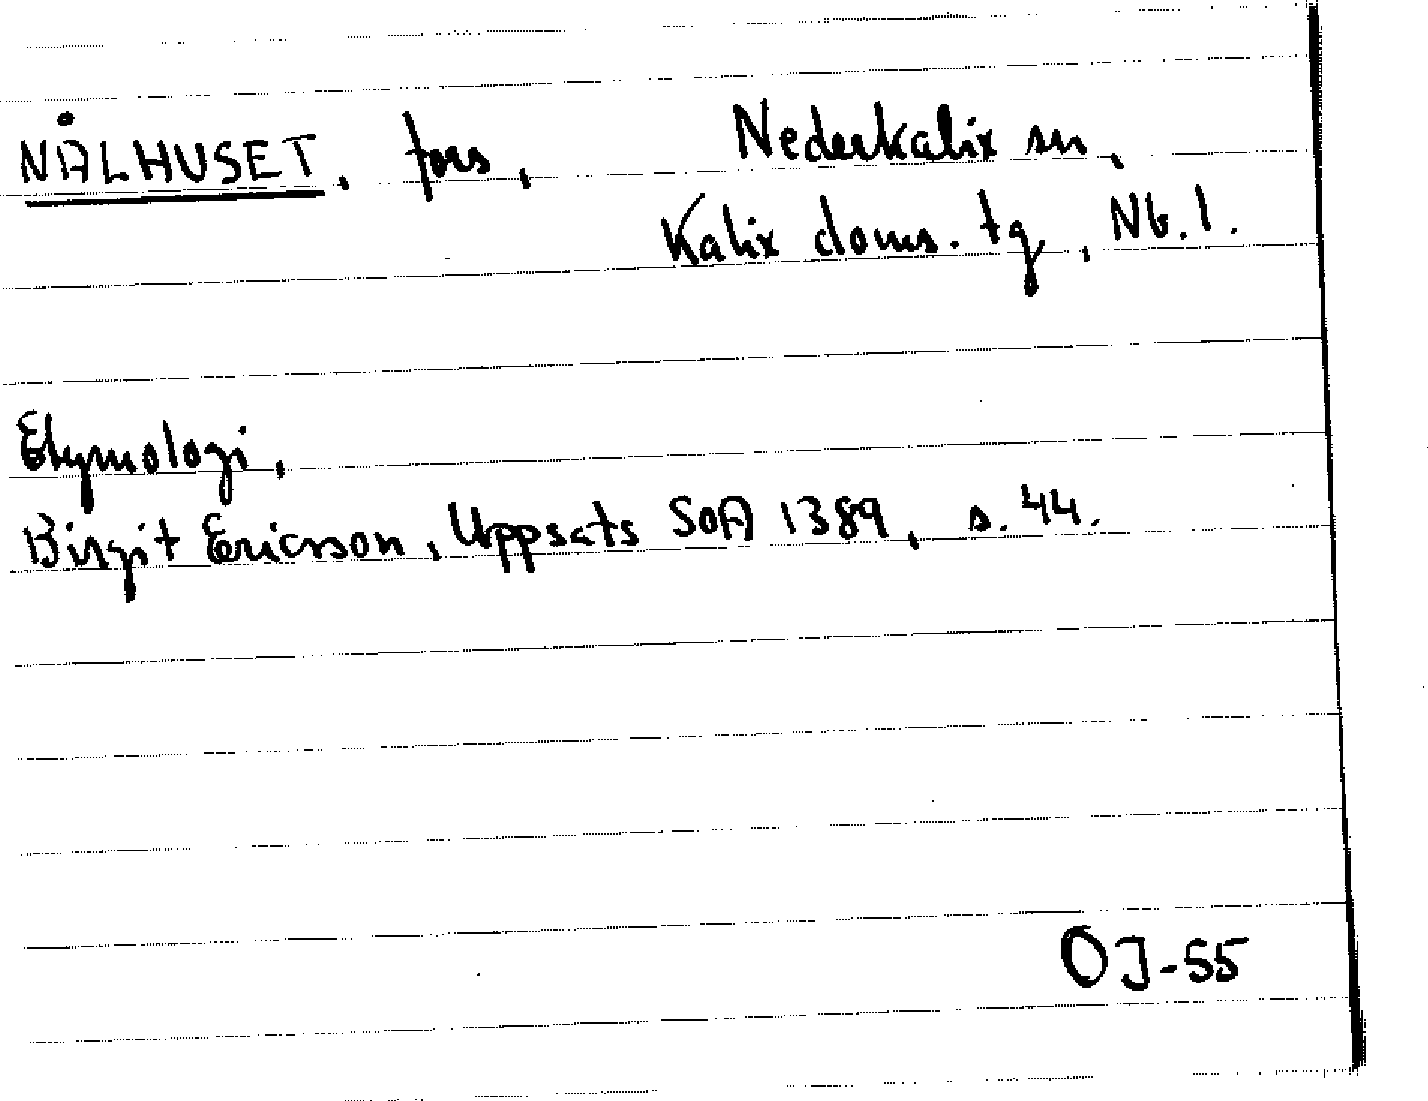 NÅLHUSET, fors, Nederkalix sn,
Kalix doms. tg, Nb. l.
Etymologi,
Birgit Ericsson, Uppsats SOA 1389, s. 44.
OJ-55